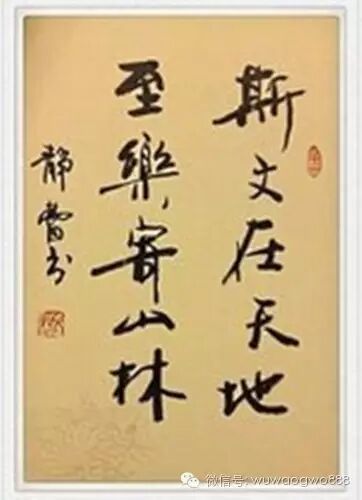 斯文在天地
至樂寄山林
静蕾书
微信号: wuwaogwo888